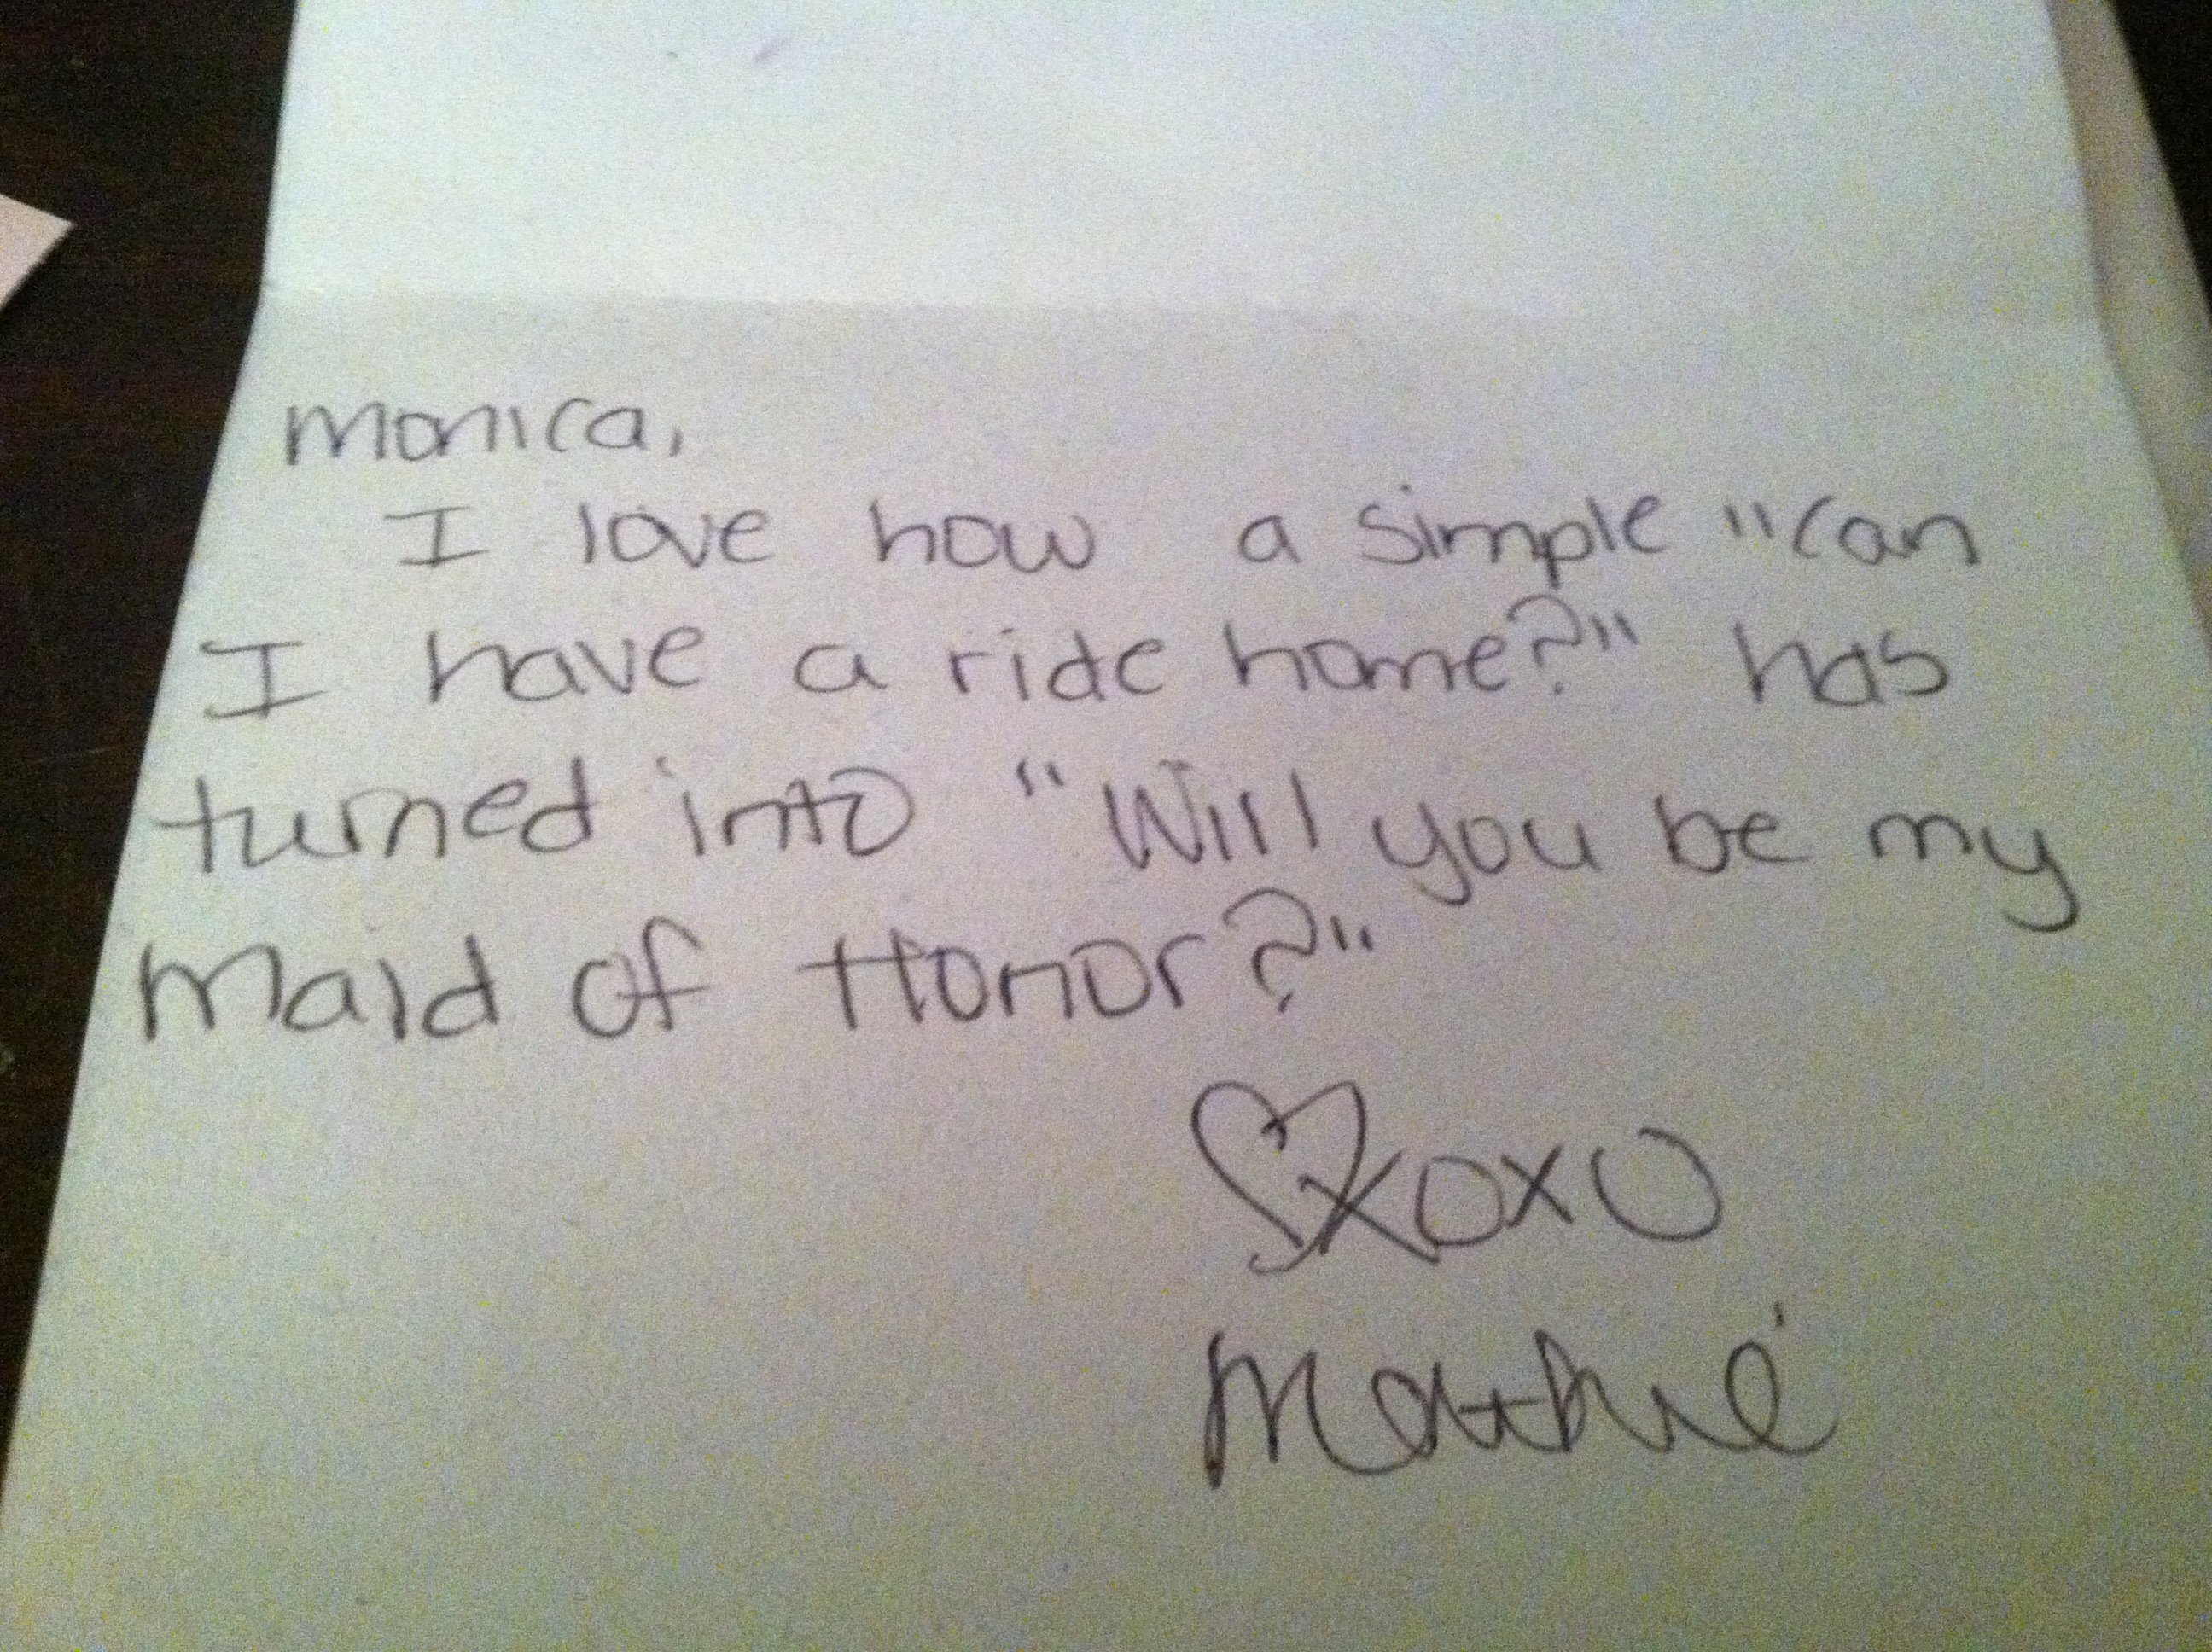 Monica,
I love how a simple "can
I have a ride home?" has
turned into "Will you be my
Maid of Honor?"
♡xoxo